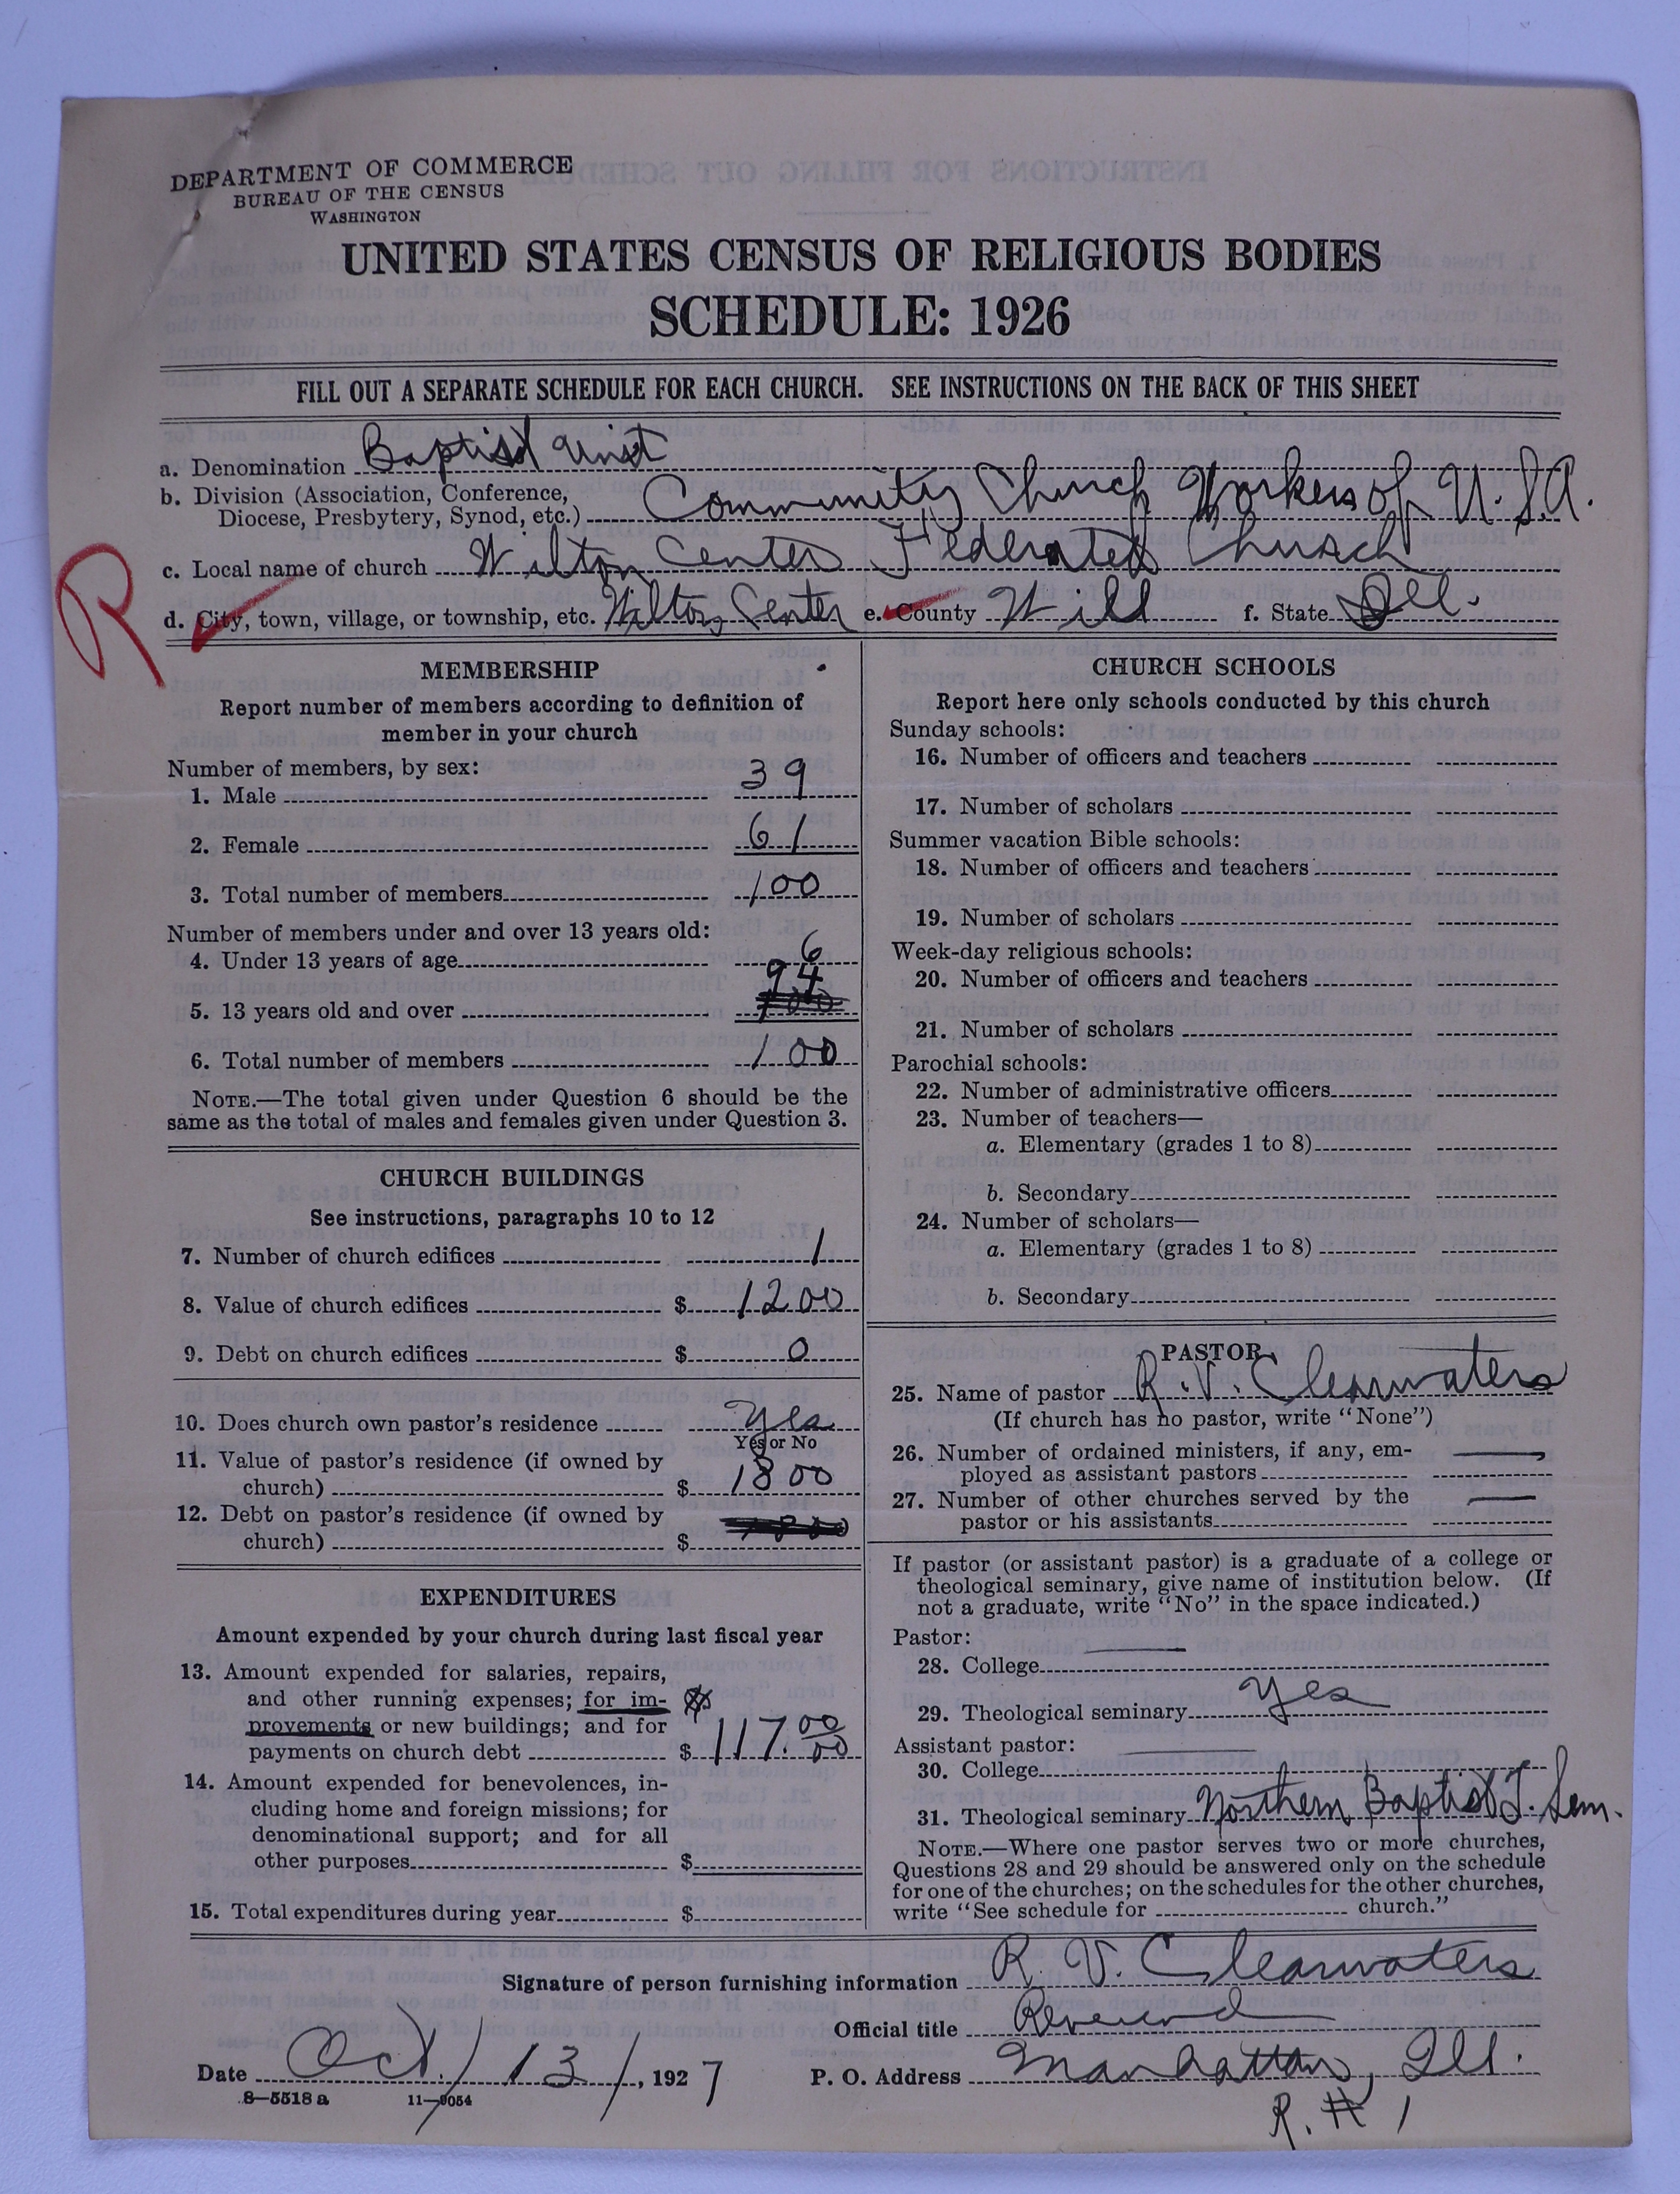 DEPARTMENT OF COMMERCE
BUREAU OF THE CENSUS
WASHINGTON
UNITED STATES CENSUS OF RELIGIOUS BODIES
SCHEDULE: 1926
FILL OUT A SEPARATE SCHEDULE FOR EACH CHURCH. SEE INSTRUCTIONS ON THE BACK OF THIS SHEET
a. Denomination Baptist Unit
b. Division (Association, Conference,
Diocese, Presbytery, Synod, etc.) Community Church Workers of U.S.A.
c. Local name of church Wilton Center Federated Church
R
d. City, town, village, or township, etc. Wilton Center e. County Will f. State Ill.
MEMBERSHIP
Report number of members according to definition of
member in your church
Number of members, by sex:
1. Male 39
2. Female 61
3. Total number of members 100
Number of members under and over 13 years old:
4. Under 13 years of age 6
5. 13 years old and over 94
6. Total number of members 100
NOTE.—The total given under Question 6 should be the
same as the total of males and females given under Question 3.
CHURCH BUILDINGS
See instructions, paragraphs 10 to 12
7. Number of church edifices 1
8. Value of church edifices $ 1200
9. Debt on church edifices $ 0
10. Does church own pastor's residence Yes
Yes or No
11. Value of pastor's residence (if owned by
church) $ 1800
12. Debt on pastor's residence (if owned by
church) $
EXPENDITURES
Amount expended by your church during last fiscal year
13. Amount expended for salaries, repairs,
and other running expenses; for im-
provements or new buildings; and for
payments on church debt $ 117.00/00
14. Amount expended for benevolences, in-
cluding home and foreign missions; for
denominational support; and for all
other purposes $
15. Total expenditures during year $
CHURCH SCHOOLS
Report here only schools conducted by this church
Sunday schools:
16. Number of officers and teachers
17. Number of scholars
Summer vacation Bible schools:
18. Number of officers and teachers
19. Number of scholars
Week-day religious schools:
20. Number of officers and teachers
21. Number of scholars
Parochial schools:
22. Number of administrative officers
23. Number of teachers—
a. Elementary (grades 1 to 8)
b. Secondary
24. Number of scholars—
a. Elementary (grades 1 to 8)
b. Secondary
PASTOR
25. Name of pastor R. V. Clearwaters
(If church has no pastor, write "None")
26. Number of ordained ministers, if any, em-
ployed as assistant pastors —
27. Number of other churches served by the
pastor or his assistants —
If pastor (or assistant pastor) is a graduate of a college or
theological seminary, give name of institution below. (If
not a graduate, write "No" in the space indicated.)
Pastor:
28. College —
29. Theological seminary Yes
Assistant pastor:
30. College —
31. Theological seminary Northern Baptist T. Sem.
NOTE.—Where one pastor serves two or more churches,
Questions 28 and 29 should be answered only on the schedule
for one of the churches; on the schedules for the other churches,
write "See schedule for church."
Signature of person furnishing information R. V. Clearwaters
Official title Reverend
Date Oct/13/, 1927 P. O. Address Manhattan, Ill.
8—5518 a 11—9054
R. # 1